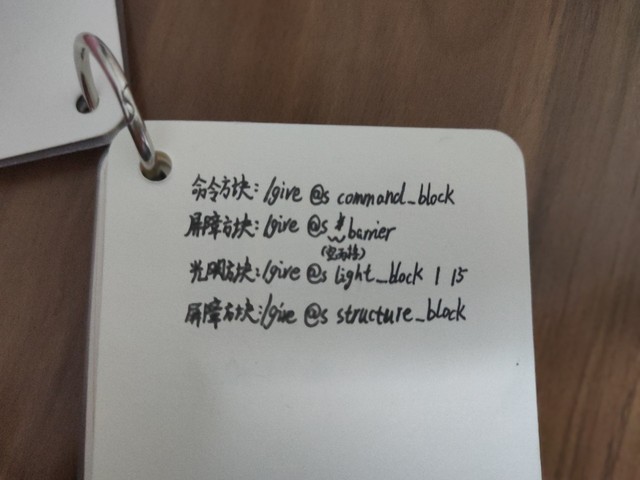 命令方块: /give @s command_block
屏障方块: /give @s barrier
(空两格)
光明方块: /give @s light_block 1 15
屏障方块: /give @s structure_block